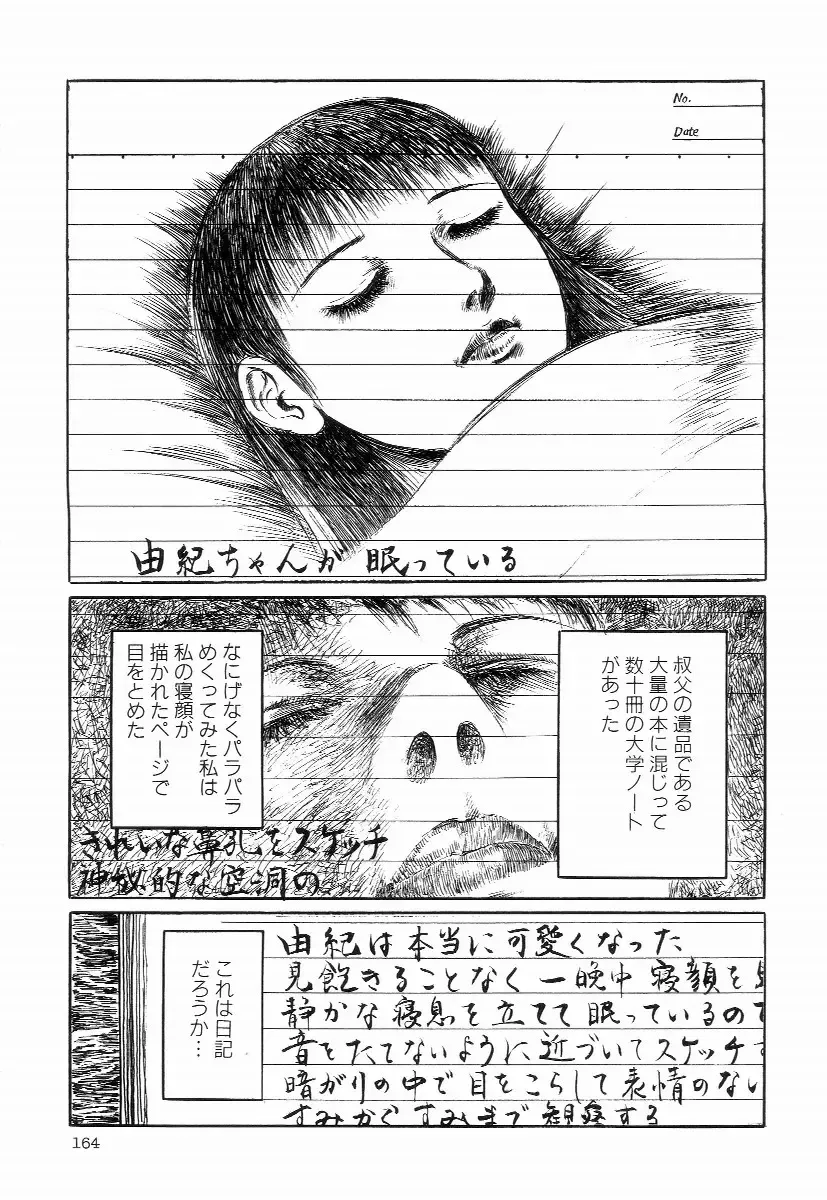 No.
Date
由紀ちゃんが眠っている
叔父の遺品である
大量の本に混じって
数十冊の大学ノート
があった
なにげなくパラパラ
めくってみた私は
私の寝顔が
描かれたページで
目をとめた
きれいな鼻孔をスケッチ
神秘的な空洞の
これは日記
だろうか…
由紀は本当に可愛くなった
見飽きることなく一晩中寝顔を
静かな寝息を立てて眠っているので
音をたてないように近づいてスケッチす
暗がりの中で目をこらして表情のない
すみからすみまで観察する
164